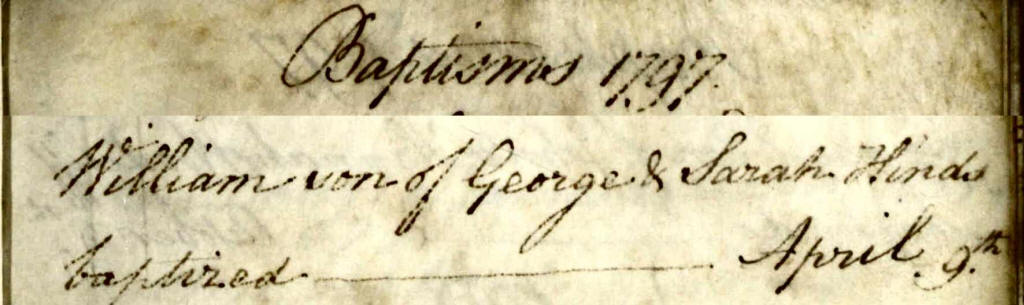 Baptisms 1797.
William son of George & Sarah Hinds
baptized — April 9th